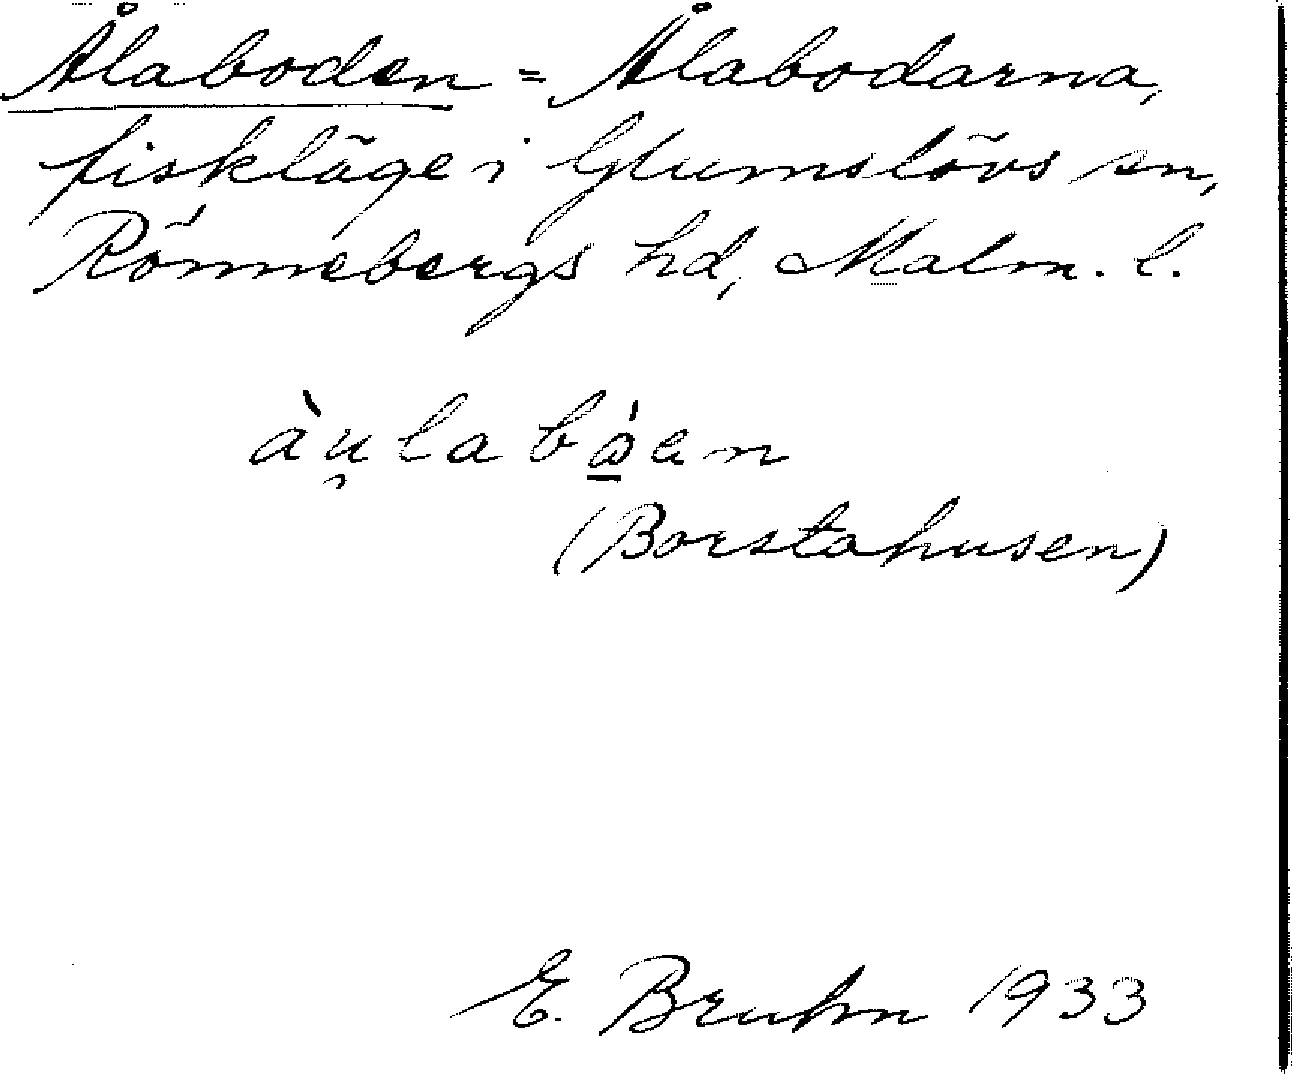 Ålaboden = Ålabodarna,
fiskläge i Glumslövs sn,
Rönnebergs hd, Malm. l.
àu̯labó̱en
(Borstahusen)
E. Bruhn 1933